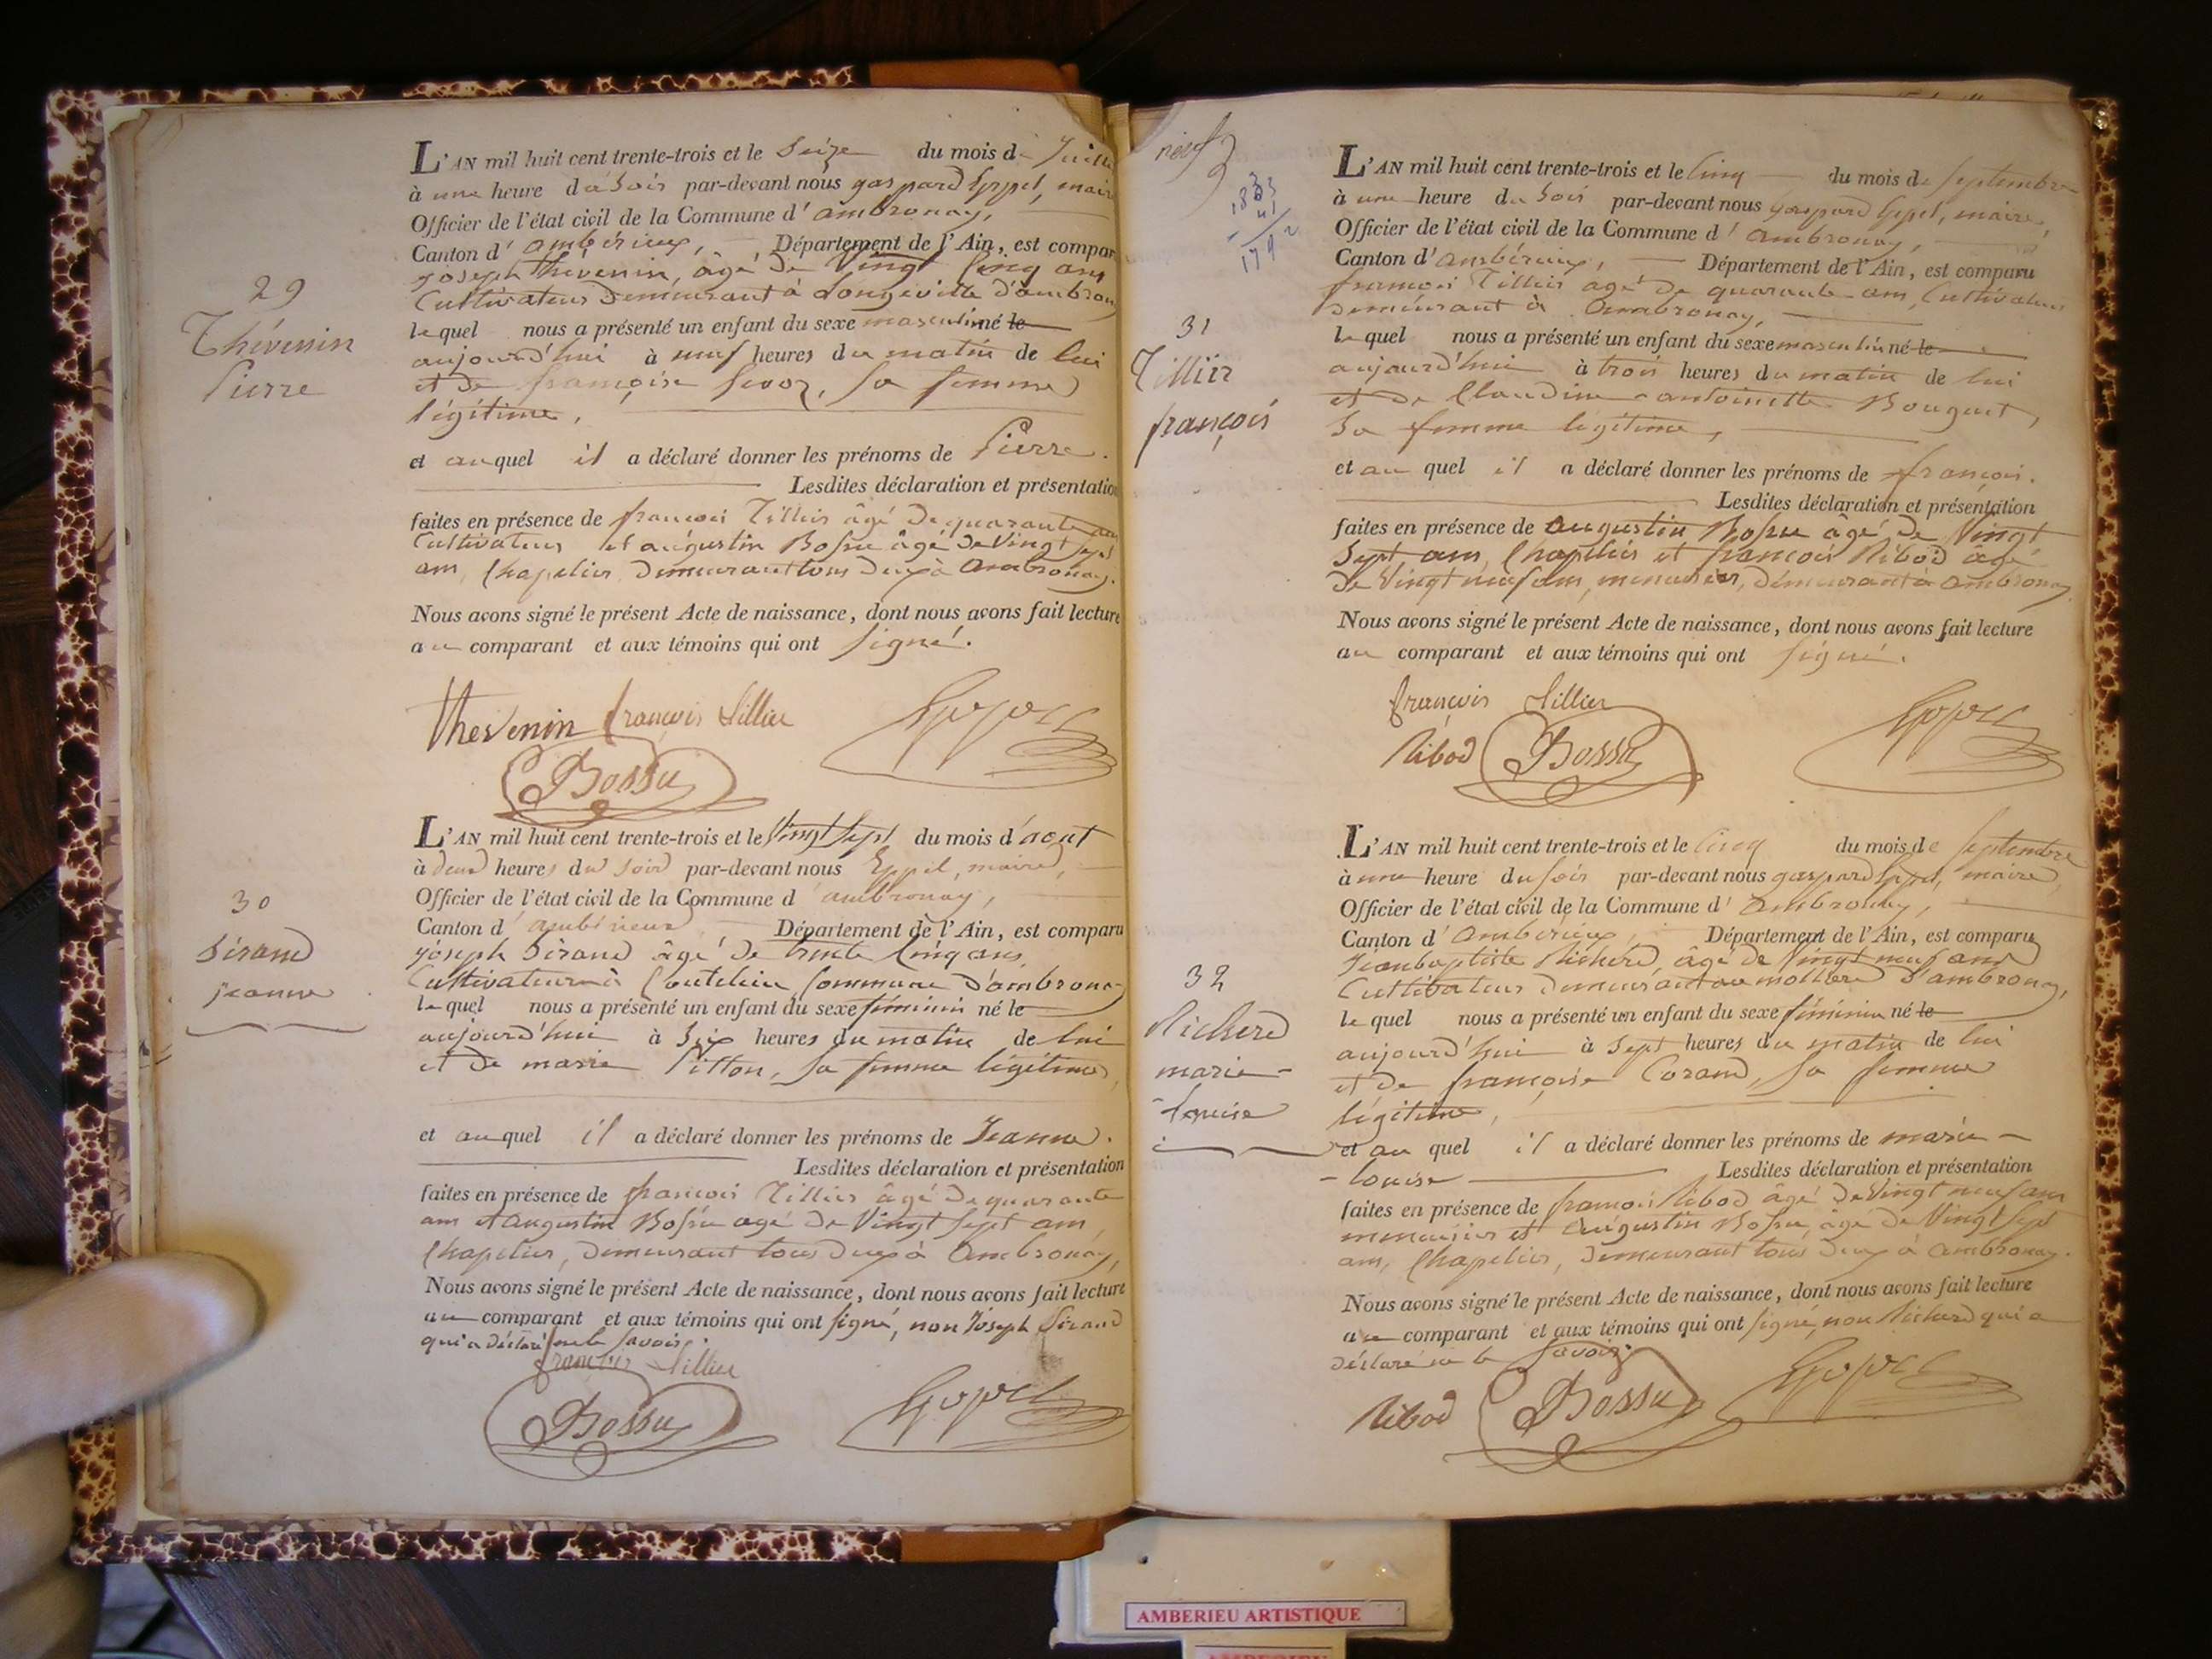 29
Thévenin
Pierre
L'AN mil huit cent trente-trois et le Seize du mois de Juillet
à une heure du Soir par-devant nous gaspard Eppel, maire
Officier de l'état civil de la Commune d'ambronay,
Canton d'ambérieux, Département de l'Ain, est comparu
joseph thévenin, âgé de Vingt Cinq ans
Cultivateur demeurant à Longeville d'ambronay
lequel nous a présenté un enfant du sexe masculin né le
aujourd'hui à neuf heures du matin de lui
et de françoise sa femme
légitime,
et auquel il a déclaré donner les prénoms de Pierre.
Lesdites déclaration et présentation
faites en présence de françois Tillier âgé de quarante ans
Cultivateur et augustin Bossu âgé de Vingt Sept
ans, Chapelier, demeurant tous deux à Ambronay.
Nous avons signé le présent Acte de naissance, dont nous avons fait lecture
au comparant et aux témoins qui ont signé.
thevenin françois tillier Eppel
Bossu
30
Sirand
jeanne
L'AN mil huit cent trente-trois et le Vingt Sept du mois d'aout
à deux heures du soir par-devant nous Eppel, maire,
Officier de l'état civil de la Commune d'ambronay,
Canton d'ambérieux Département de l'Ain, est comparu
joseph Sirand âgé de trente Cinq ans,
Cultivateur à Commune d'ambronay
lequel nous a présenté un enfant du sexe féminin né le
aujourd'hui à Six heures du matin de lui
et de marie Pitton, sa femme légitime,
et auquel il a déclaré donner les prénoms de Jeanne.
Lesdites déclaration et présentation
faites en présence de françois Tillier âgé de quarante
ans et augustin Bossu agé de Vingt Sept ans,
Chapelier, demeurant tous deux à Ambronay,
Nous avons signé le présent Acte de naissance, dont nous avons fait lecture
au comparant et aux témoins qui ont signé, non Joseph Sirand
qui a déclaré ne le savoir.
françois tillier
Bossu Eppel
neuf
1833
41
1792
31
Tillier
françois
L'AN mil huit cent trente-trois et le Cinq du mois de Septembre
à une heure du Soir par-devant nous gaspard Eppel, maire,
Officier de l'état civil de la Commune d'ambronay,
Canton d'ambérieux, Département de l'Ain, est comparu
françois Tillier agé de quarante ans, Cultivateur
demeurant à Ambronay,
lequel nous a présenté un enfant du sexe masculin né le
aujourd'hui à trois heures du matin de lui
et de Claudine-antoinette Bouquet,
Sa femme légitime,
et auquel il a déclaré donner les prénoms de françois.
Lesdites déclaration et présentation
faites en présence de augustin Bossu âgé de Vingt
Sept ans, Chapelier et françois Ribod âgé
de Vingt neuf ans, menuisier, demeurant à ambronay
Nous avons signé le présent Acte de naissance, dont nous avons fait lecture
au comparant et aux témoins qui ont signé.
françois tillier
Ribod Bossu Eppel
32
Richerd
marie-
-louise
L'AN mil huit cent trente-trois et le Cinq du mois de Septembre
à une heure du soir par-devant nous gaspard Eppel, maire,
Officier de l'état civil de la Commune d'Ambronay,
Canton d'Ambérieux, Département de l'Ain, est comparu
Jeanbaptiste Richerd, âgé de Vingt neuf ans
Cultivateur demeurant au mollard d'ambronay,
lequel nous a présenté un enfant du sexe féminin né le
aujourd'hui à Sept heures du matin de lui
et de françoise Corand, sa femme
légitime,
et au quel il a déclaré donner les prénoms de marie-
-louise Lesdites déclaration et présentation
faites en présence de françois Ribod âgé de Vingt neuf ans
menuisier et augustin Bossu, âgé de Vingt Sept
ans, Chapelier, demeurant tous deux à ambronay.
Nous avons signé le présent Acte de naissance, dont nous avons fait lecture
au comparant et aux témoins qui ont signé, non Richerd qui a
déclaré ne le savoir.
Ribod Bossu Eppel
AMBERIEU ARTISTIQUE